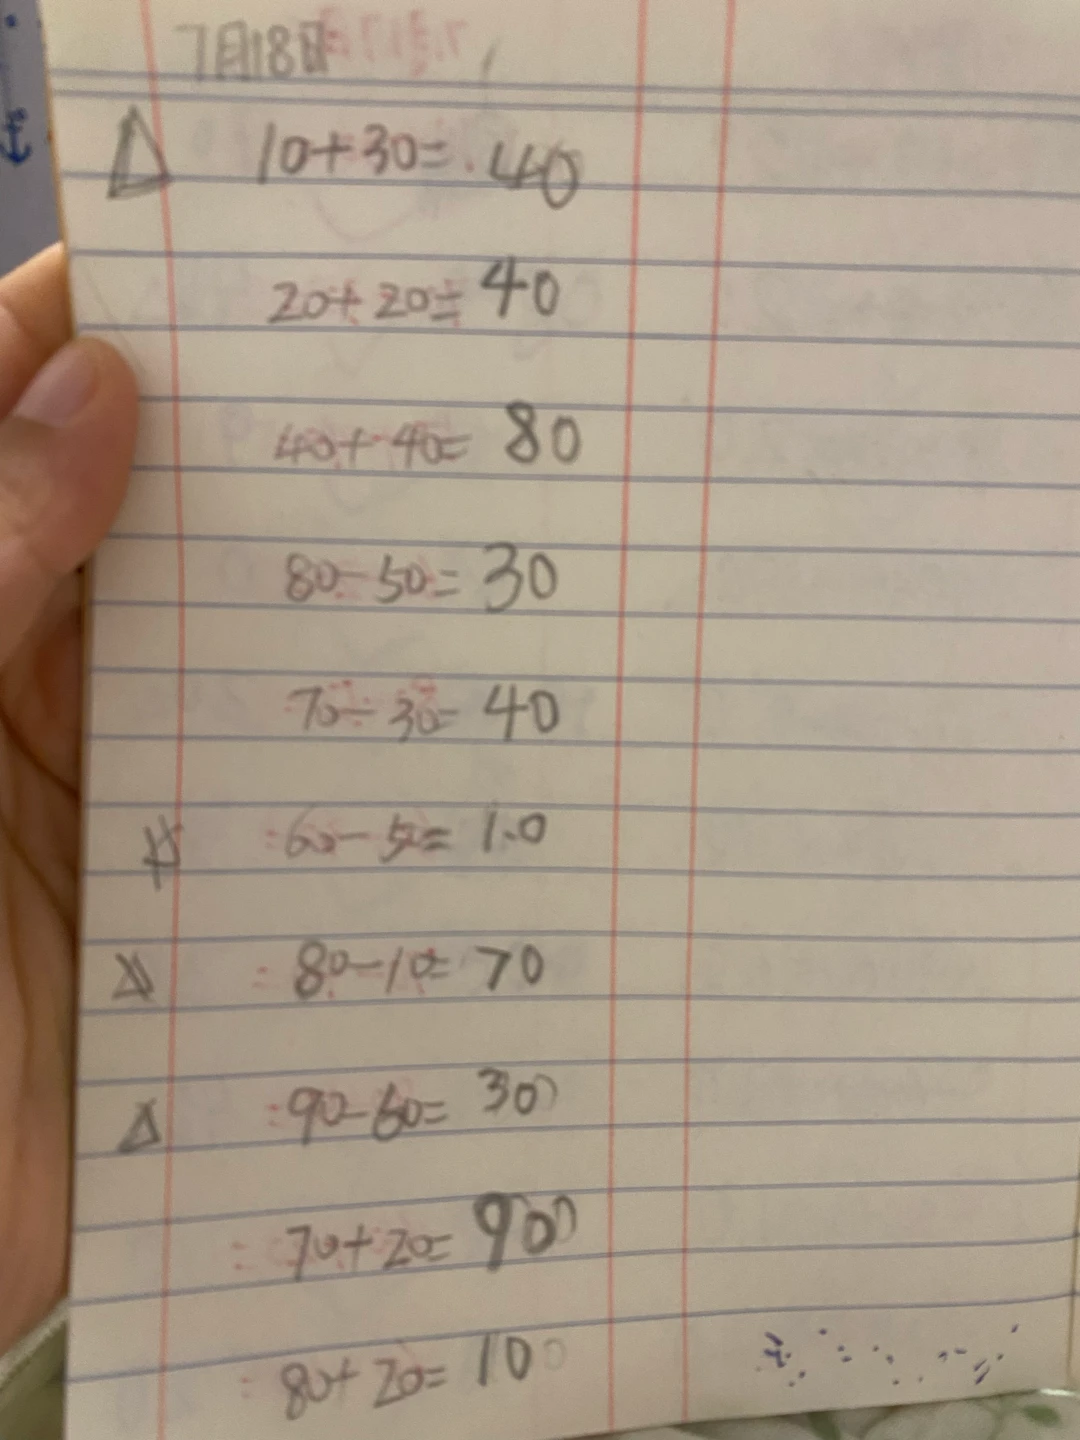 7月18日
10+30=40
20+20=40
40+40=80
80-50=30
70-30=40
60-50=10
80-10=70
90-60=30
70+20=90
80+20=100